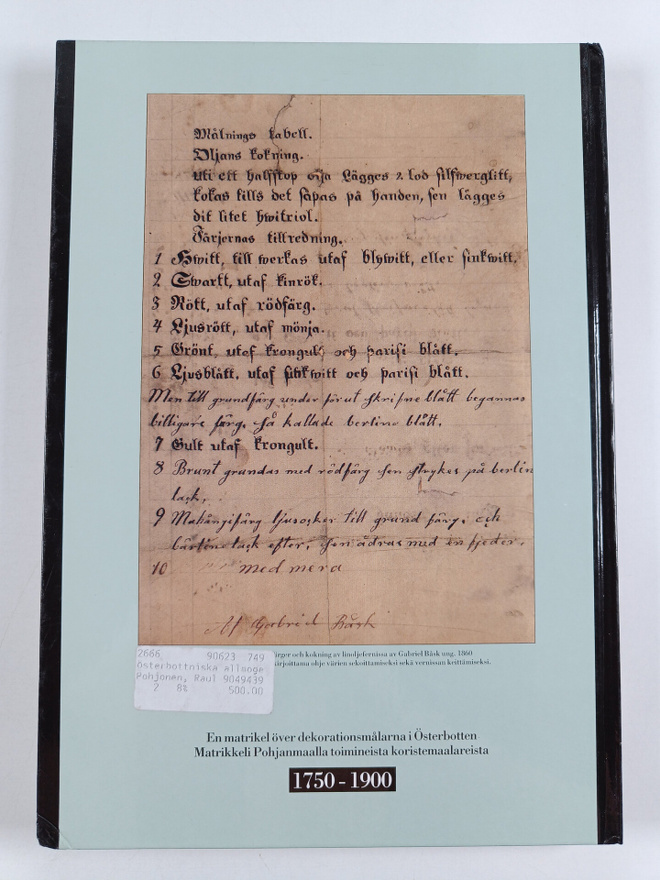 Målnings tabell.
Oljans kokning.
uti ett halfstop olja Lägges 2. lod silfwerglitt,
kokas tills det såpas på handen, sen lägges
dit litet hwitriol.
Färjernas tillredning.
1 Hwitt, till werkas utaf blywitt, eller sinkwitt.
2 Swartt, utaf kinrök.
3 Rött, utaf rödfärg.
4 Ljusrött, utaf mönja.
5 Grönt, utaf krongult och parisi blått.
6 Ljusblått, utaf sinkwitt och parisi blått.
Men till grundfärg under förut skrifne blått begannas
billigare färg, så kallade berline blått.
7 Gult utaf krongult.
8 Brunt grundas med rödfärg sen strykes på berlin
lack.
9 Mahångifärg ljusocker till grund färg, och
bärline lack efter, sen ådras med en fjeder.
10 med mera
Af Gabriel Båsk
ärger och kokning av linoljefernissa av Gabriel Båsk ung. 1860
irjoittama ohje värien sekoittamiseksi sekä vernissan keittämiseksi.
2666 90623 749
Österbottniska allmoge
Pohjonen, Raul 9049439
2 8% 500.00
En matrikel över dekorationsmålarna i Österbotten
Matrikkeli Pohjanmaalla toimineista koristemaalareista
1750 - 1900